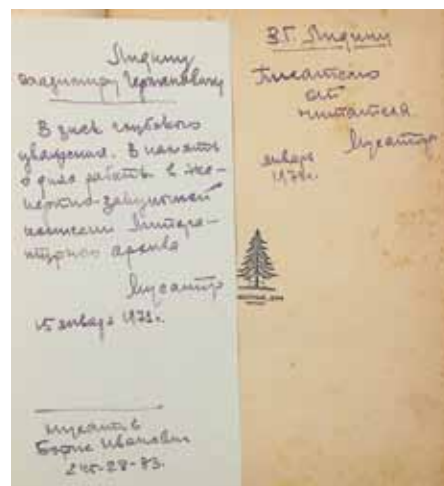 Лидину
Владимиру Германовичу
В знак глубокого
уважения. В память
о днях работы в экс-
пертно-закупочной
комиссии Литера-
турного архива
15 января 1971г.
Борис Иванович
245-28-83.
В.Г. Лидину
Писателю
от
читателя
январь